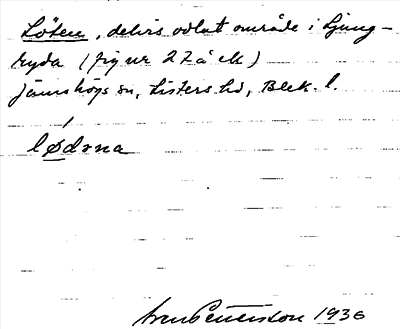 Löten, delvis odlat område i Ljung-
ryda (fig nr 27 å ek)
Jämshögs sn, Listers hd, Blek. l.
lødɘna
Pettersson 1936